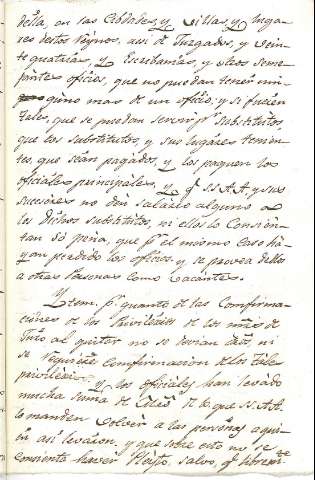 della, en las Cibdades, y Villas, y Luga-
res destos Reynos, asi de Juzgados, y Vein-
te quatrias, y Escribanias, y otros seme-
jantes oficios, que no puedan tener nin-
guno mas de un oficio, y si fueren
tales, que se puedan servir pr substitutos
que los substitutos, y sus lugares tenien-
tes, que sean pagados, y los paguen los
oficiales principales, y q SS.AA. y sus
sucesores no den salario alguno a
los dichos substitutos, ni ellos lo consien-
tan so pena, que pr el mismo caso ha-
yan perdido los oficios, y se provea dellos
a otras Personas como vacantes.
Ytem. pr quanto de las Comfirma-
ciones de los Privilexios de los mrs de
Juro al quitar no se devian dros, ni
se requiere comfirmacion de los tales
privilexios. Y los oficiales han levado
mucha suma de de lo que SS.AA.
lo manden volver a las personas a quie-
n asi levaron, y que sobre esto no se
consienta haver Pleyto, salvo, q libremte